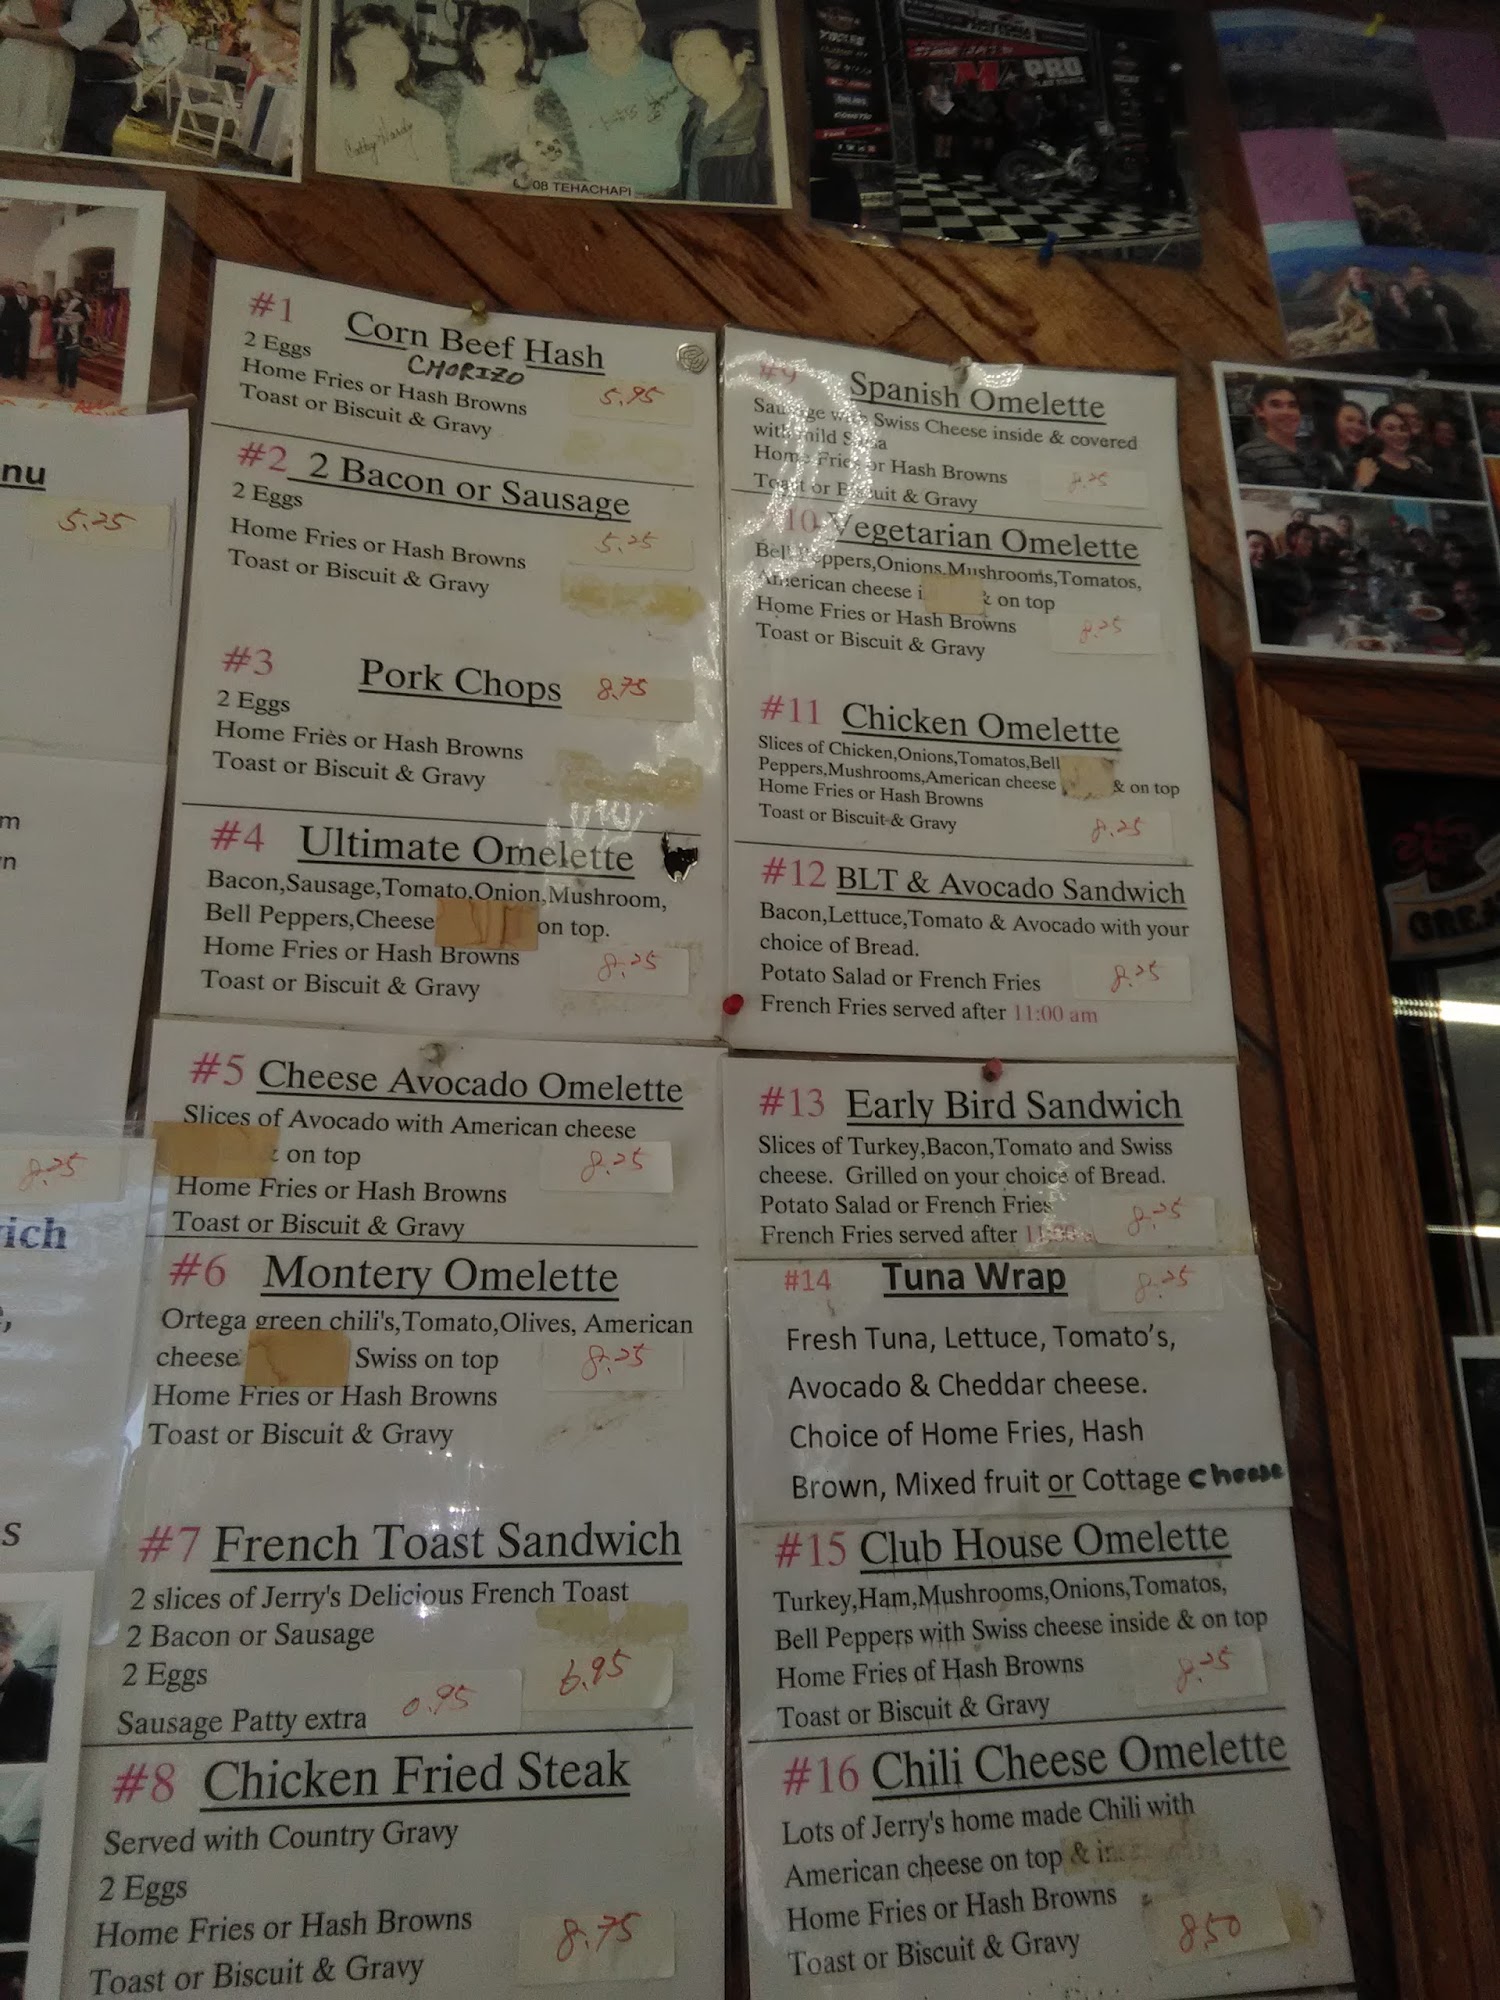 Cathy Hardy
08 TEHACHAPI
PRO
nu
5.25
8.25
ich
#1 Corn Beef Hash
CHORIZO
2 Eggs
Home Fries or Hash Browns
5.95
Toast or Biscuit & Gravy
#2 2 Bacon or Sausage
2 Eggs
5.25
Home Fries or Hash Browns
Toast or Biscuit & Gravy
#3 Pork Chops 8.75
2 Eggs
Home Fries or Hash Browns
Toast or Biscuit & Gravy
#4 Ultimate Omelette
Bacon,Sausage,Tomato,Onion,Mushroom,
Bell Peppers,Cheese on top.
Home Fries or Hash Browns
8.25
Toast or Biscuit & Gravy
#5 Cheese Avocado Omelette
Slices of Avocado with American cheese
& on top
8.25
Home Fries or Hash Browns
Toast or Biscuit & Gravy
#6 Montery Omelette
Ortega green chili's,Tomato,Olives, American
cheese Swiss on top
8.25
Home Fries or Hash Browns
Toast or Biscuit & Gravy
#7 French Toast Sandwich
2 slices of Jerry's Delicious French Toast
2 Bacon or Sausage
2 Eggs
6.95
Sausage Patty extra 0.95
#8 Chicken Fried Steak
Served with Country Gravy
2 Eggs
Home Fries or Hash Browns
8.75
Toast or Biscuit & Gravy
#9 Spanish Omelette
Sausage with Swiss Cheese inside & covered
with mild Salsa
Home Fries or Hash Browns
8.25
Toast or Biscuit & Gravy
10 Vegetarian Omelette
Bell Peppers,Onions,Mushrooms,Tomatos,
American cheese & on top
Home Fries or Hash Browns
8.25
Toast or Biscuit & Gravy
#11 Chicken Omelette
Slices of Chicken,Onions,Tomatos,Bell
Peppers,Mushrooms,American cheese & on top
Home Fries or Hash Browns
Toast or Biscuit & Gravy
8.25
#12 BLT & Avocado Sandwich
Bacon,Lettuce,Tomato & Avocado with your
choice of Bread.
Potato Salad or French Fries
8.25
French Fries served after 11:00 am
#13 Early Bird Sandwich
Slices of Turkey,Bacon,Tomato and Swiss
cheese. Grilled on your choice of Bread.
Potato Salad or French Fries
8.25
French Fries served after 11:00
#14 Tuna Wrap 8.25
Fresh Tuna, Lettuce, Tomato's,
Avocado & Cheddar cheese.
Choice of Home Fries, Hash
Brown, Mixed fruit or Cottage cheese
#15 Club House Omelette
Turkey,Ham,Mushrooms,Onions,Tomatos,
Bell Peppers with Swiss cheese inside & on top
Home Fries of Hash Browns
8.25
Toast or Biscuit & Gravy
#16 Chili Cheese Omelette
Lots of Jerry's home made Chili with
American cheese on top &
Home Fries or Hash Browns
8.50
Toast or Biscuit & Gravy